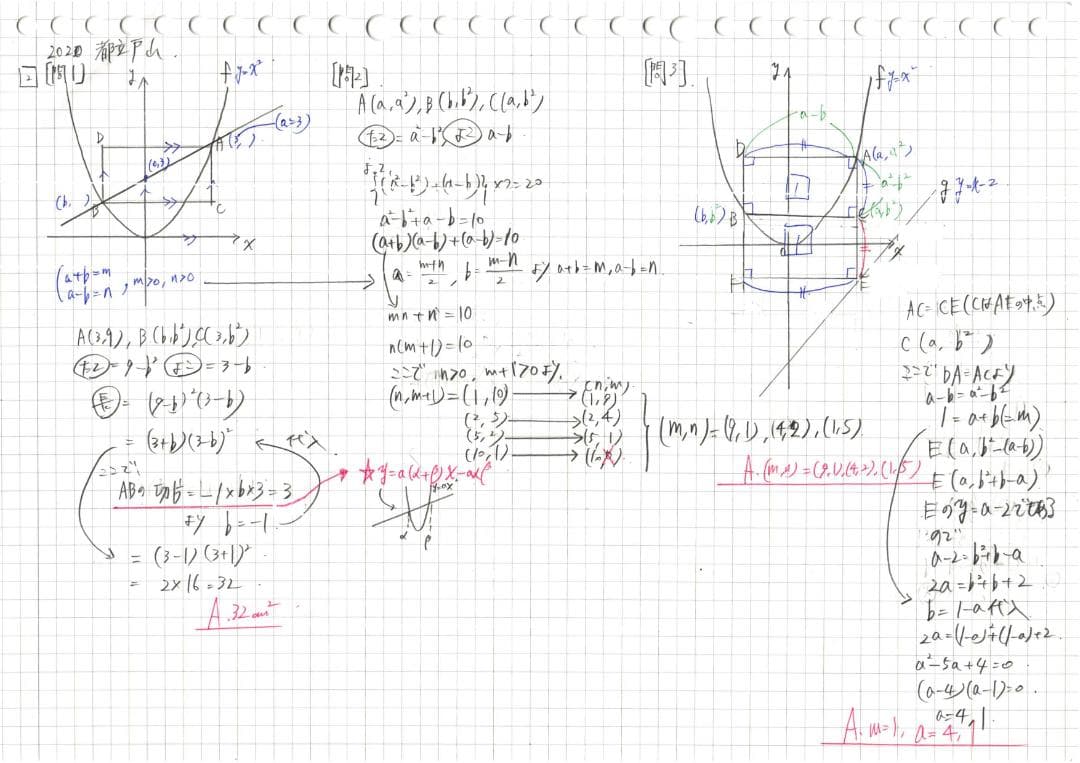 2020 都立戸山
2 [問1]
y
f y=x²
(a=3)
D
A(3, )
(0,3)
(b, )
B
C
x
(a+b=m
a-b=n , m>0, n>0
A(3,9), B(b,b²), C(3,b²)
たて=9-b² よこ=3-b
長=(9-b²)(3-b)
=(3+b)(3-b)²
代入
ここで
ABの切片=-1×b×3=3
より b=-1
=(3-1)(3+1)²
=2×16=32
A.32cm²
[問2]
A(a,a²), B(b,b²), C(a,b²)
たて=a²-b², よこ a-b
より
{(a²-b²)+(a-b)}×2=20
a²-b²+a-b=10
(a+b)(a-b)+(a-b)=10
a=m+n/2, b=m-n/2 より a+b=m, a-b=n
mn+n=10
n(m+1)=10
ここで n>0, m+1>0より
(n,m)
(n,m+1)=(1,10) (1,9)
(2,5) (2,4)
(5,2) (5,1)
(10,1)
(m,n)=(9,1),(4,2),(1,5)
A.(m,n)=(9,1),(4,2),(1,5)
☆y=a(α+β)x-aαβ
α
β
[問3]
y
f y=x²
a-b
D
A(a,a²)
a²-b²
g y=x-2
(b,b²)
B
C(a,b²)
x
F
E
AC=CE(CはAEの中点)
C(a, b²)
ここで DA=ACより
a-b=a²-b²
1=a+b(=m)
E(a,b²-(a-b))
E(a,b²+b-a)
Eのy=a-2である
ので
a-2=b²+b-a
2a=b²+b+2
b=1-a代入
2a=(1-a)²+(1-a)+2
a²-5a+4=0
(a-4)(a-1)=0
a=4,1
A. m=1, a=4,1